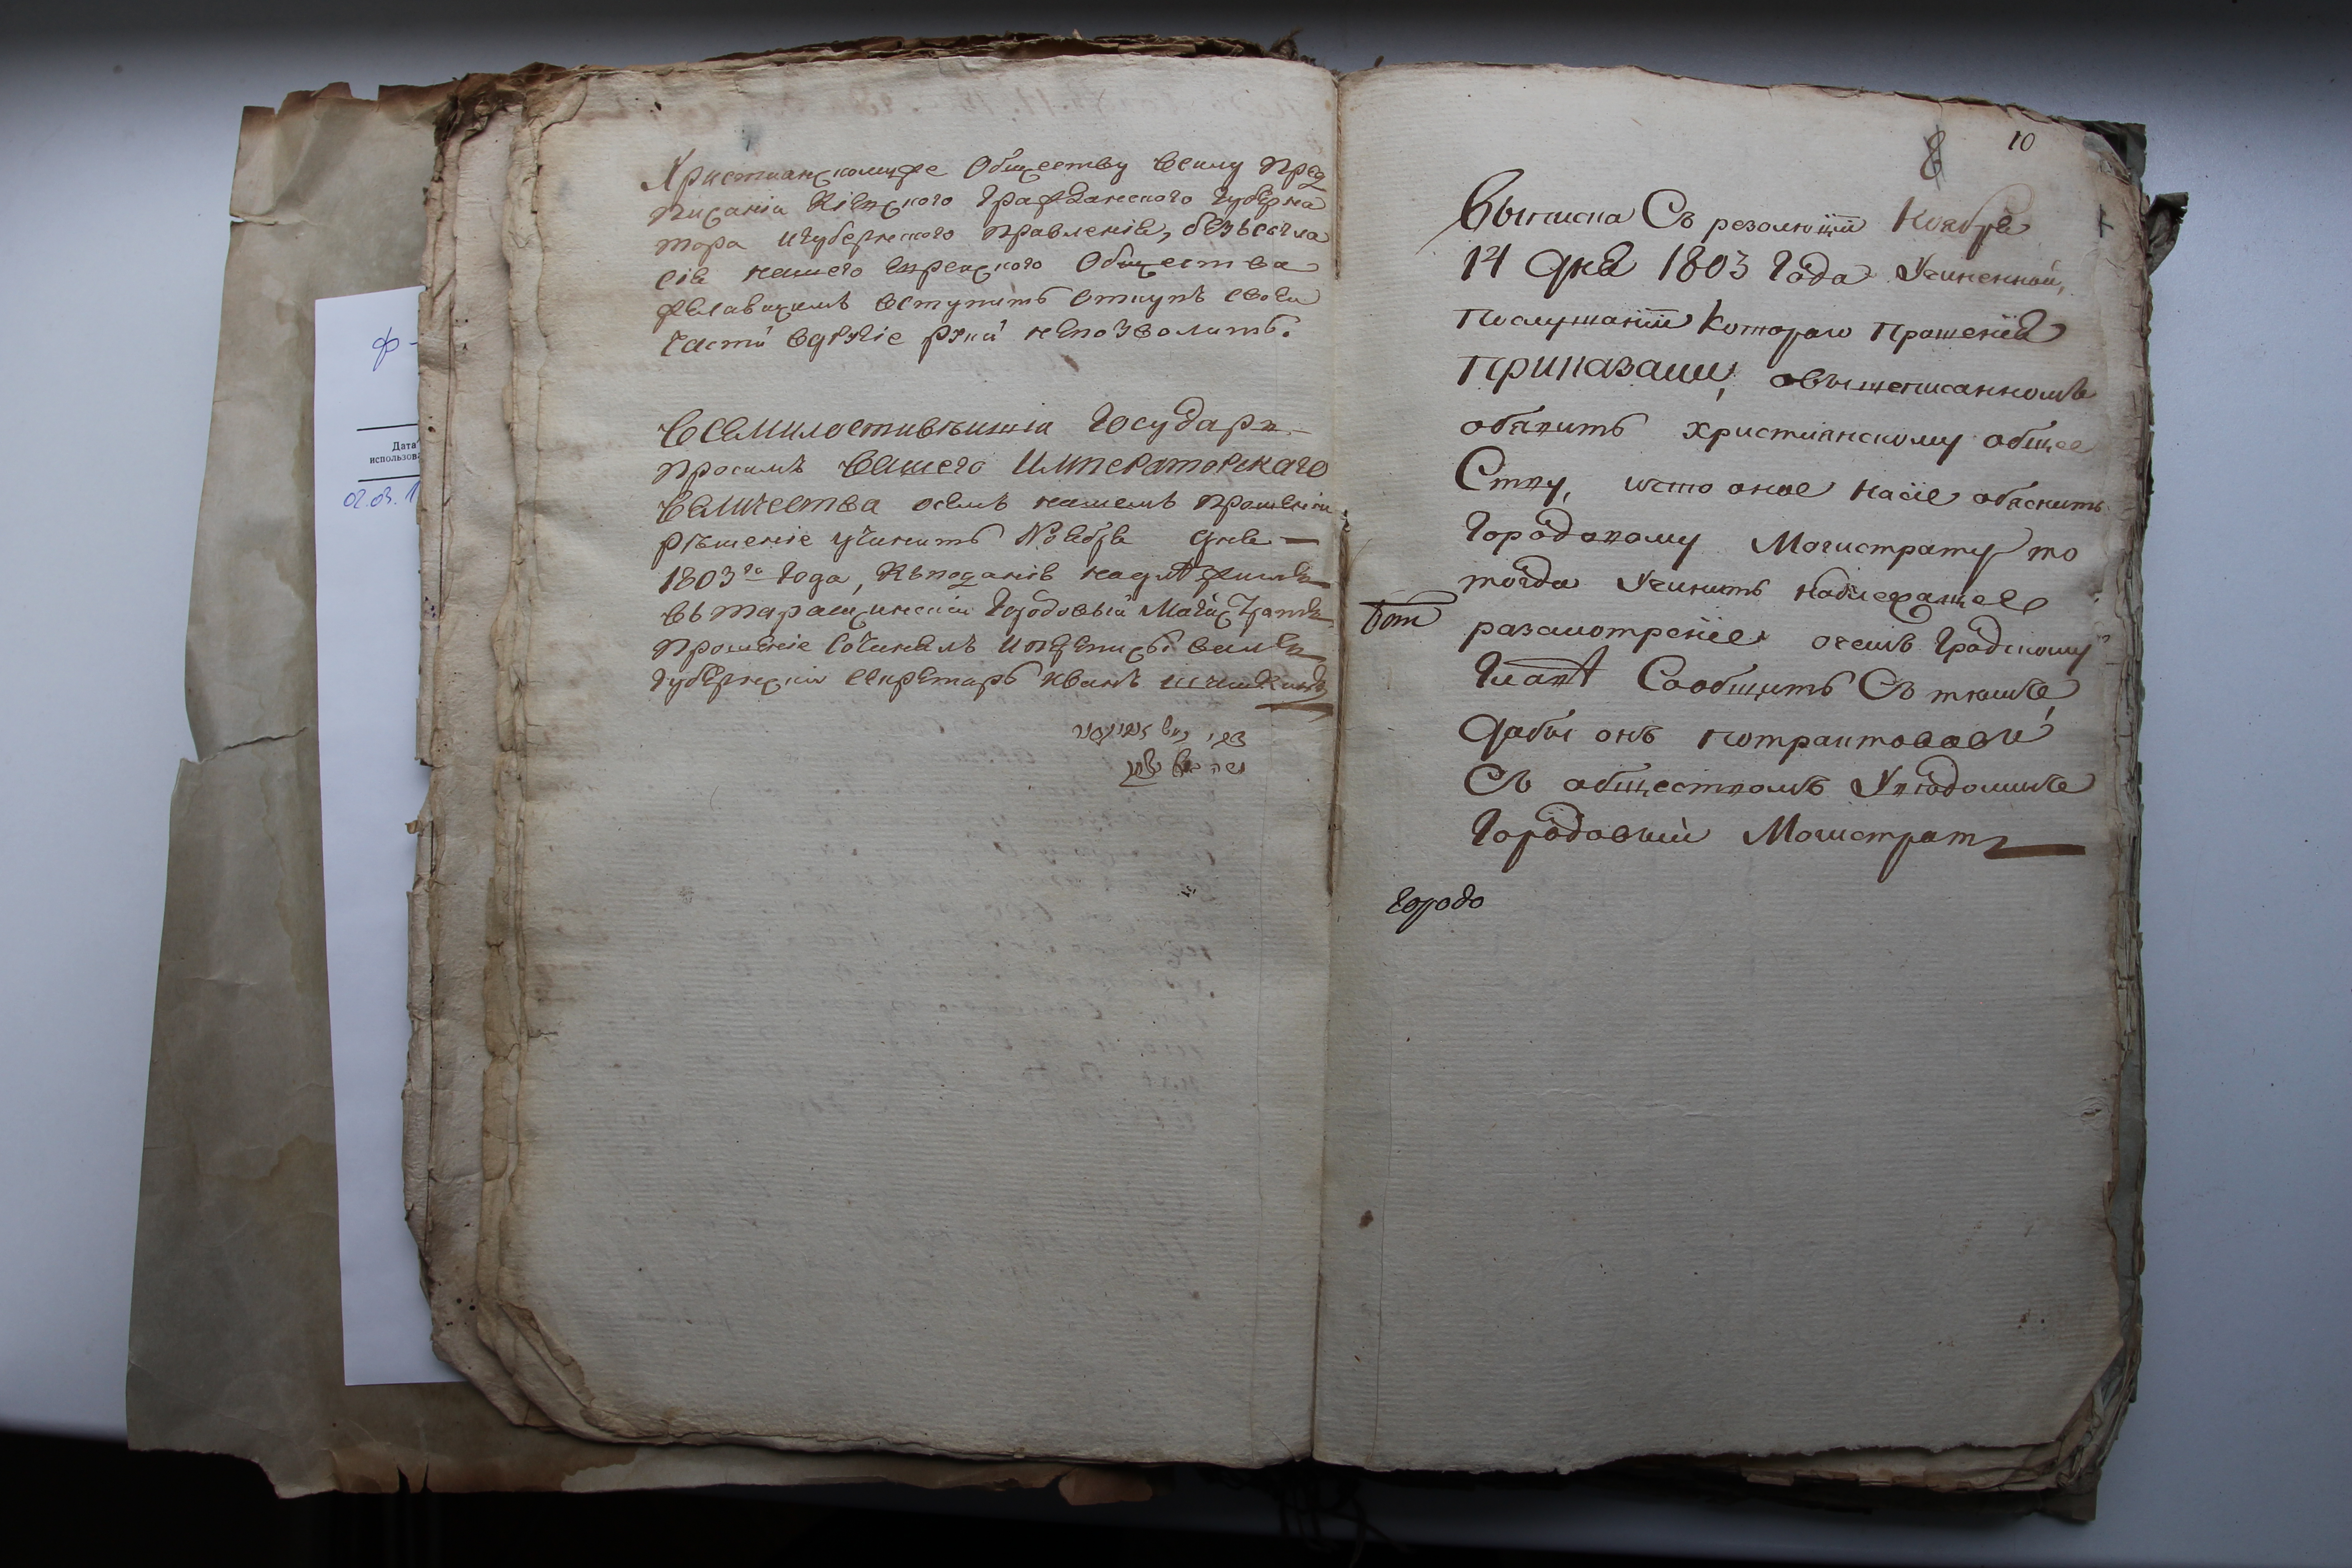 Христианскомуже Обществу всилу пред
писанія Кіевского Гражданского Губерна
тора игубернского правленія, безъсогла
сія нашего Еврейского Общества
желающимъ вступить вткупъ своеи
части вдругіе руки непозволить.
Всемилостивѣишіи Государь
просимъ Вашего Императорскаго
Величества осемъ нашемъ прошеніи
рѣшеніе учинить Ноября дня —
1803го Года, Къподанію надлежитъ
въ таращинскіи Городовыи Магистратъ
прошеніе сочинялъ ипереписывалъ
Губернскіи секретарь Иванъ
ф-
Дата
использова
02.03.1
8 10
Выписка Съ резолюціи Ноября
14 дня 1803 Года Учиненной,
послушаніи Котораго прошенія
Приказали, овышеписанномъ
обявить христианскому обще
Ству, ичто оное насіе обяснить
Городовому Магистрату то
тогда Учинить надлежащее
разсмотреніе, очемъ Градскому
Главѣ Сообщить Съ темъ,
дабы онъ потрактовавъ
Съ обществомъ Уведомилъ
Городовый Магистратъ
Городо